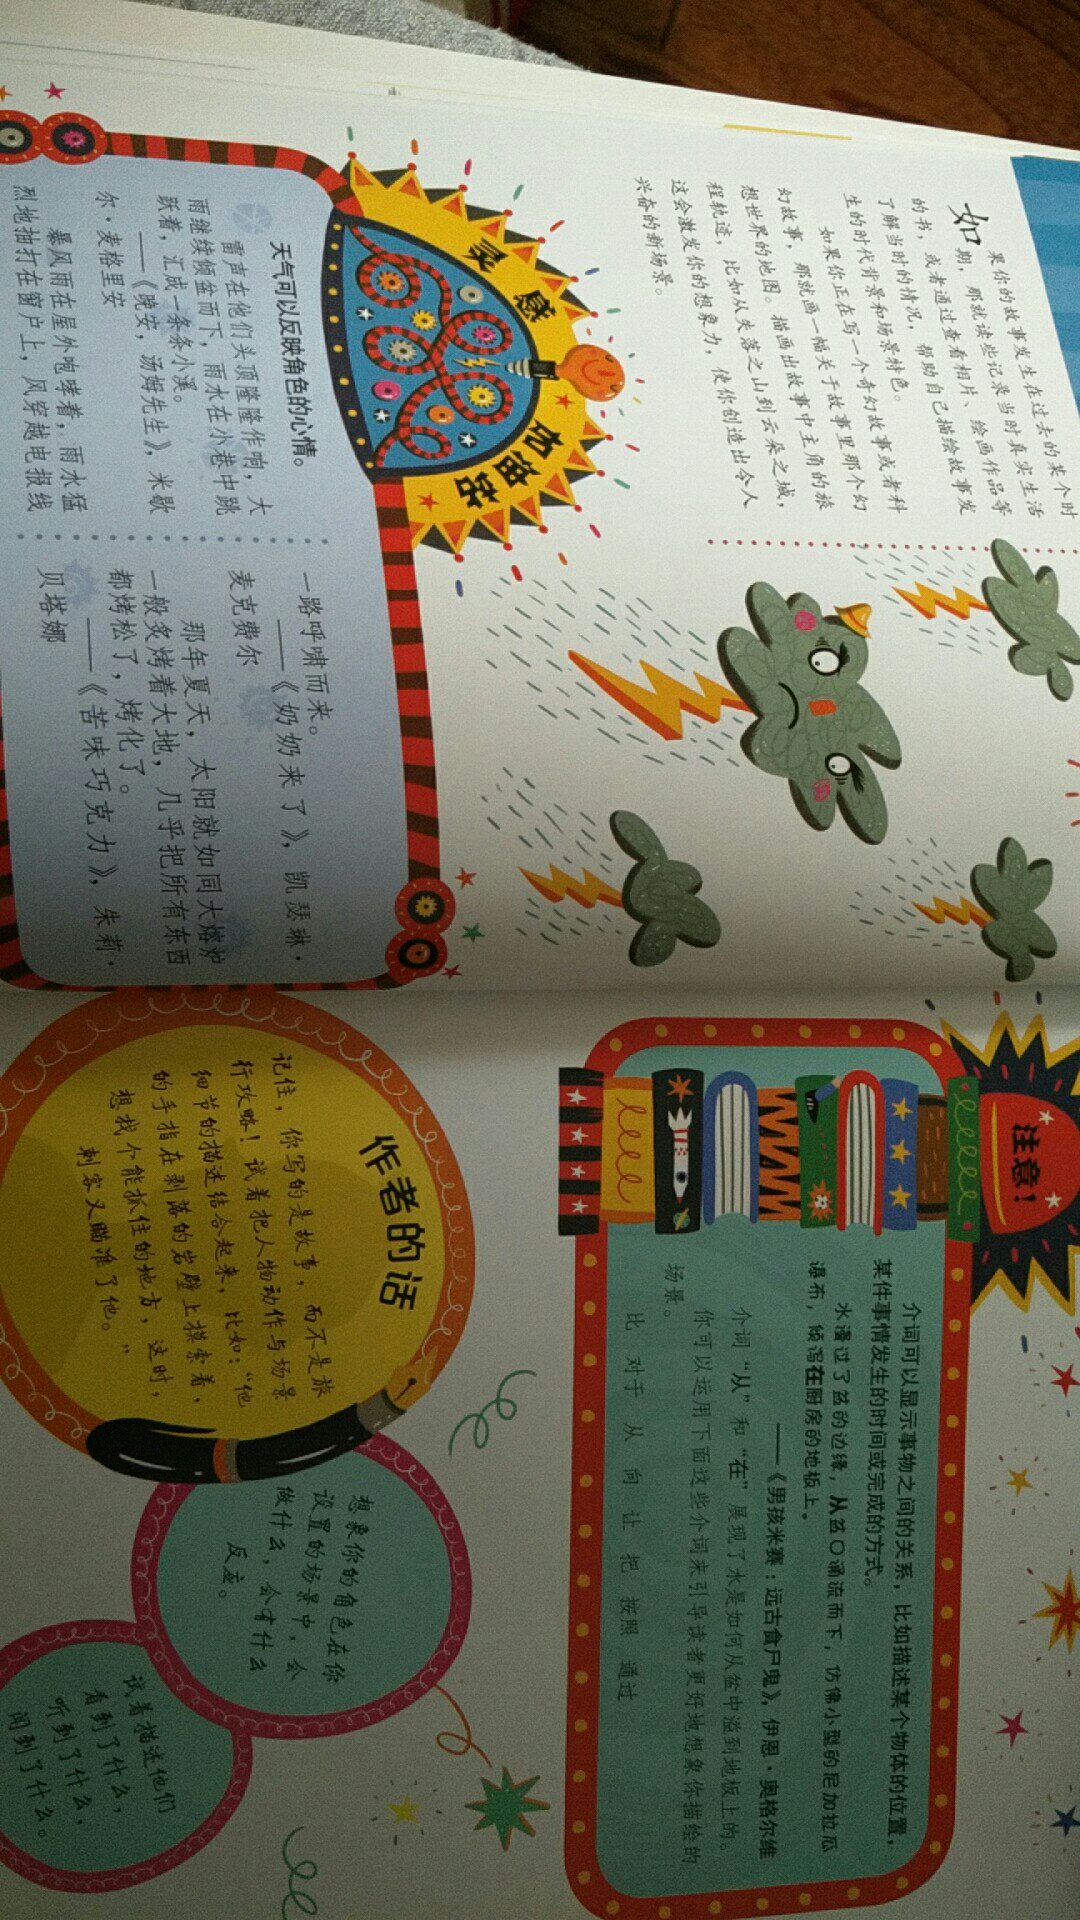 如果你的故事发生在过去的某个时
期，那就读些记录当时真实生活
的书，或者通过查看相片、绘画作品等
了解当时的情况，帮助自己描绘故事发
生的时代背景和场景特色。
如果你正在写一个奇幻故事或者科
幻故事，那就画一幅关于故事里那个幻
想世界的地图。描画出故事中主角的旅
程轨迹，比如从失落之山到云朵之城，
这会激发你的想象力，使你创造出令人
兴奋的新场景。
灵感
加油站
天气可以反映角色的心情。
雷声在他们头顶隆隆作响，大
雨继续倾盆而下，雨水在小巷中跳
跃着，汇成一条条小溪。
——《晚安，汤姆先生》，米歇
尔·麦格里安
暴风雨在屋外咆哮着，雨水猛
烈地抽打在窗户上，风穿越电报线
一路呼啸而来。
——《奶奶来了》，凯瑟琳·
麦克费尔
那年夏天，太阳就如同大熔炉
一般炙烤着大地，几乎把所有东西
都烤松了，烤化了。
——《苦味巧克力》，朱莉·
贝塔娜
注意！
介词可以显示事物之间的关系，比如描述某个物体的位置，
某件事情发生的时间或完成的方式。
水漫过了盆的边缘，从盆口涌流而下，仿佛小型的尼加拉瓜
瀑布，倾泻在厨房的地板上。
——《男孩米赛：远古食尸鬼》，伊恩·奥格尔维
介词“从”和“在”展现了水是如何从盆中溢到地板上的。
你可以运用下面这些介词来引导读者更好地想象你描绘的
场景。
比 对于 从 向 让 把 按照 通过
作者的话
记住，你写的是故事，而不是旅
行攻略！试着把人物动作与场景
细节的描述结合起来，比如：“他
的手指在剥落的岩壁上摸索着，
想找个能抓住的地方，这时，
刺客又瞄准了他。”
想象你的角色在你
设置的场景中，会
做什么，会有什么
反应。
试着描述他们
看到了什么，
听到了什么，
闻到了什么。